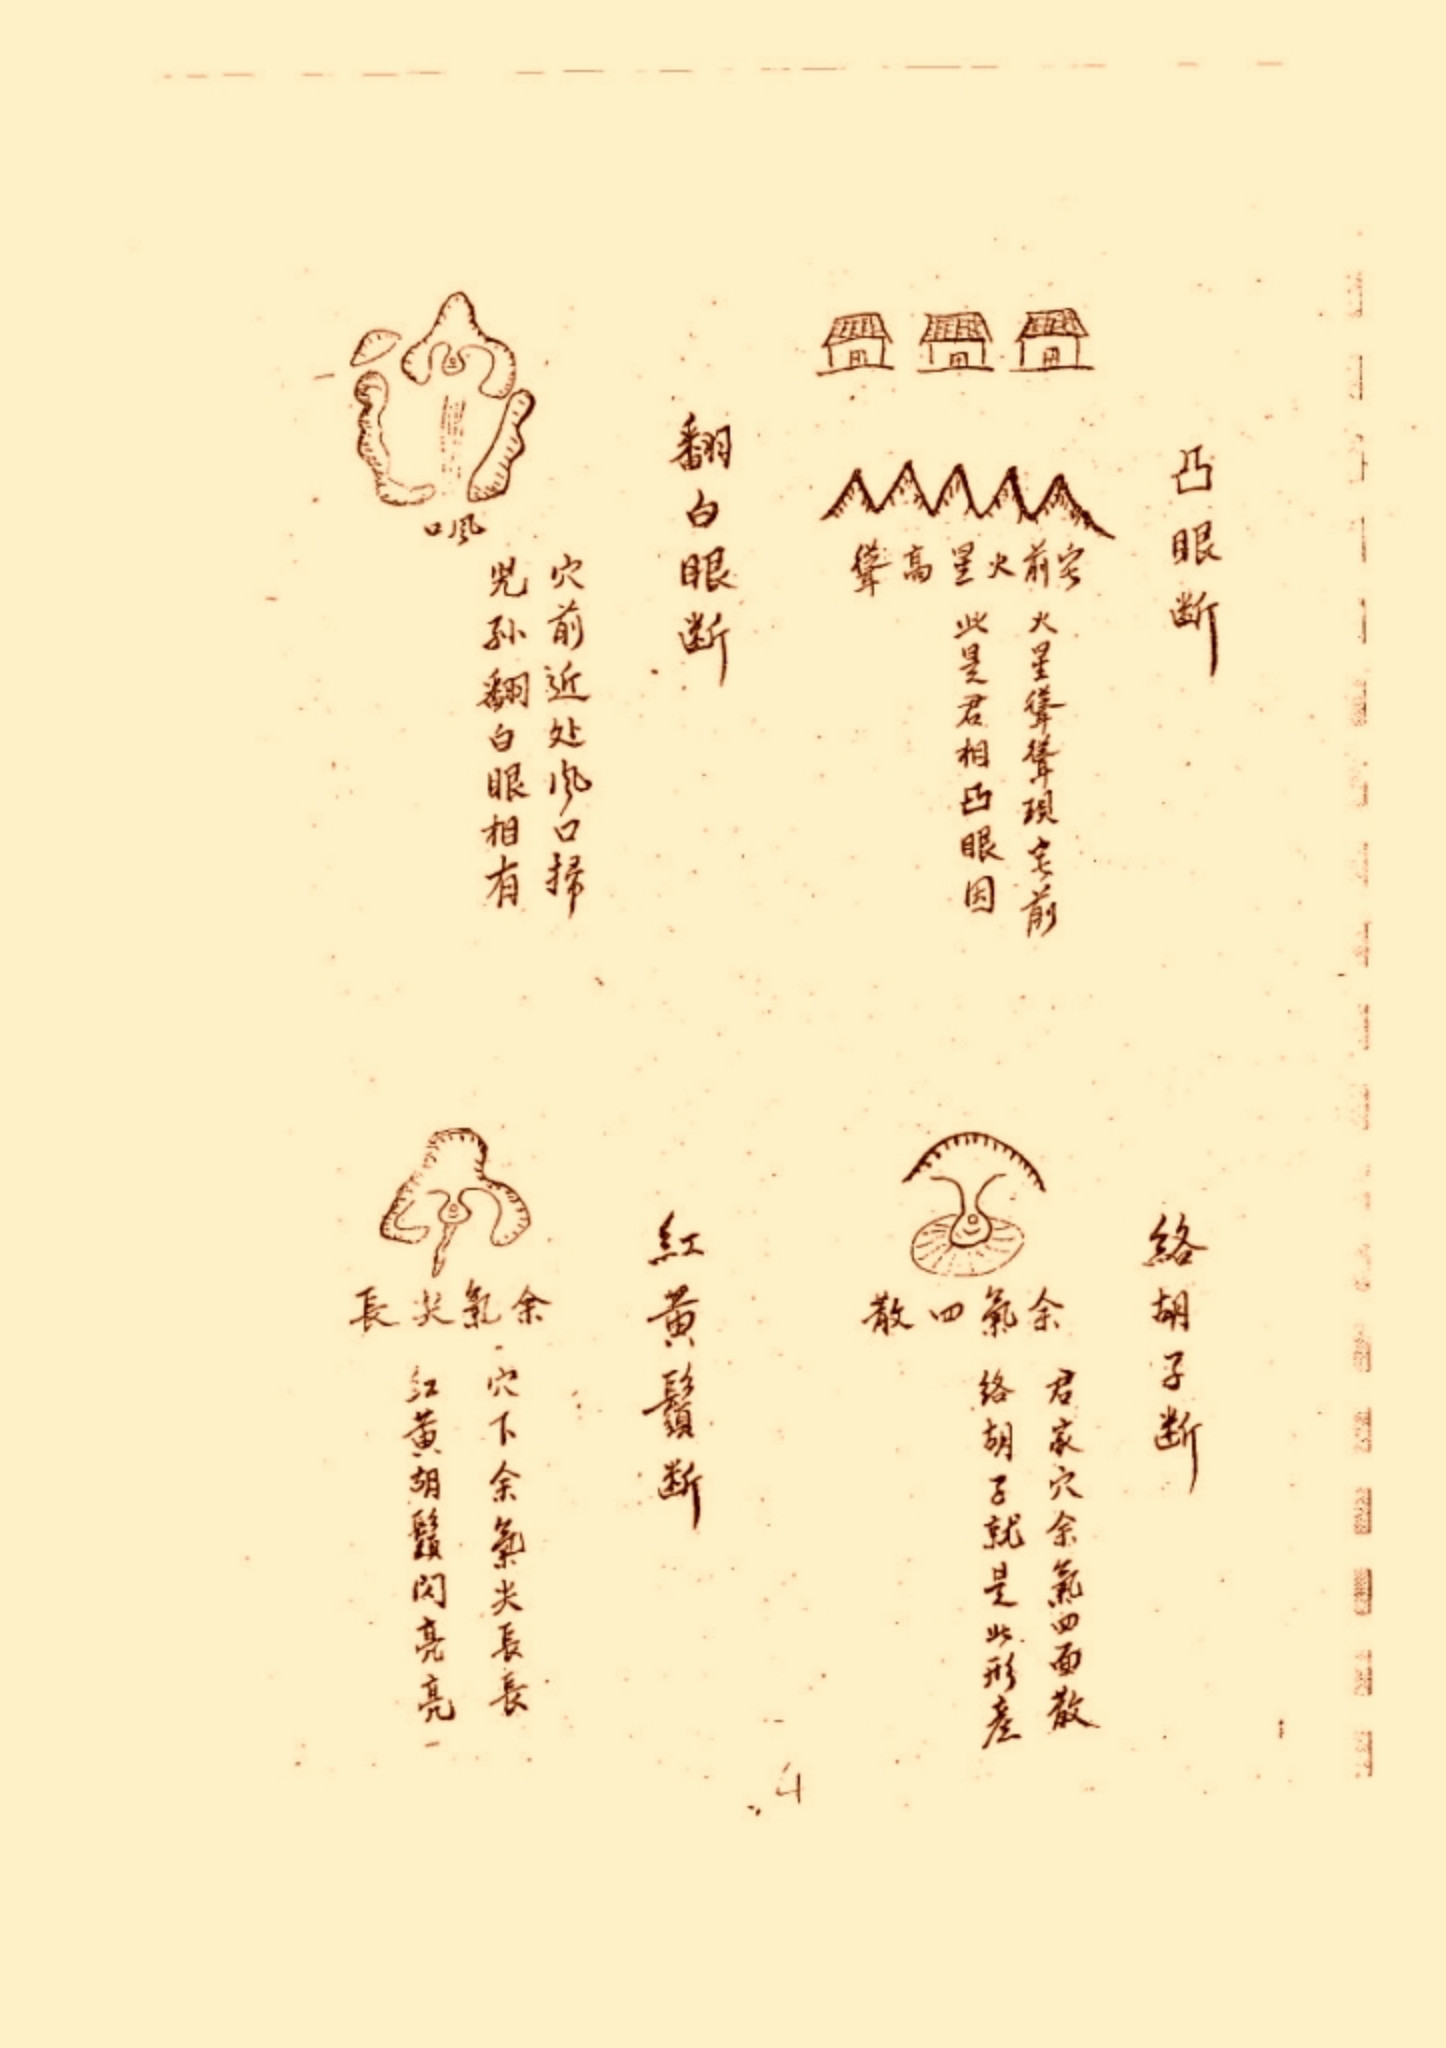 凸眼断
宅前火星高聳
火星聳聳現宅前
此是君相凸眼因
翻白眼断
風口
穴前近处风口掃
兒孙翻白眼相有
絡胡子断
余氣四散
君家穴余氣四面散
络胡子就是此形產
紅黃鬚断
余氣尖長
穴下余氣尖長長
红黃胡鬚閃亮亮
4